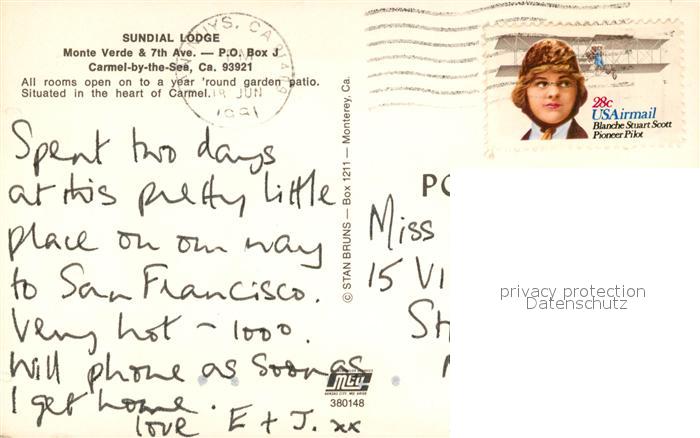 SUNDIAL LODGE
Monte Verde & 7th Ave. — P.O. Box J
Carmel-by-the-Sea, Ca. 93921
All rooms open on to a year 'round garden patio.
Situated in the heart of Carmel.
JUN
1981
28c
USAirmail
Blanche Stuart Scott
Pioneer Pilot
Spent two days
at this pretty little
place on our way
to San Francisco.
Very hot - 1000.
Will phone as soon as
I get home.
love E + J. xx
© STAN BRUNS — Box 1211 — Monterey, Ca.
PO
Miss
15 VI
St
MCU
KANSAS CITY, MO.
380148
privacy protection
Datenschutz